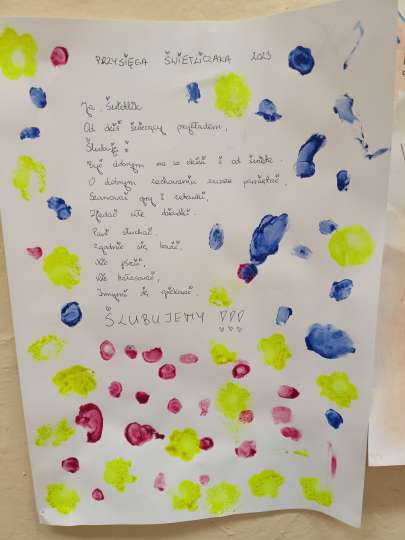 PRZYSIĘGA ŚWIETLICZAKA 2023
Ja, Świetlik
Od dziś świecący przykładem,
Ślubuję:
Być dobrym na co dzień i od święta.
O dobrym zachowaniu zawsze pamiętać,
Szanować gry i zabawki,
Zjadać całe obiadki.
Pani słuchać.
Zgodnie się bawić,
Nie psocić,
Nie hałasować,
Innymi się opiekować.
ŚLUBUJEMY !!!